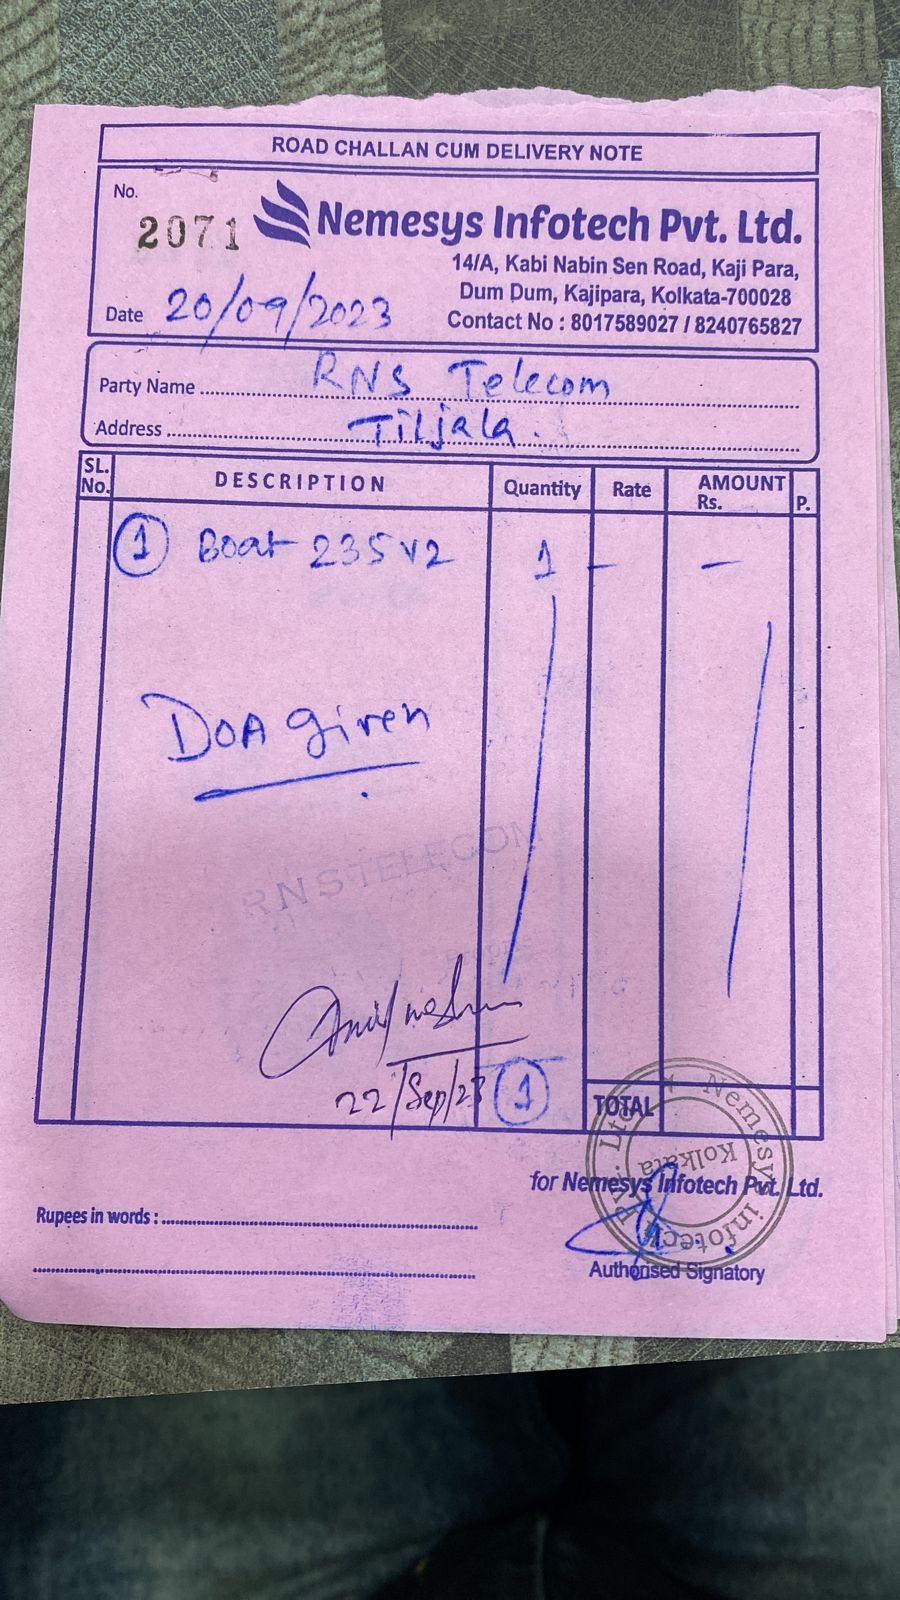 ROAD CHALLAN CUM DELIVERY NOTE
No.
2071
Nemesys Infotech Pvt. Ltd.
14/A, Kabi Nabin Sen Road, Kaji Para,
Dum Dum, Kajipara, Kolkata-700028
Contact No : 8017589027 / 8240765827
Date 20/09/2023
Party Name RNS Telecom
Address Tiljala.
SL. No. DESCRIPTION Quantity Rate AMOUNT Rs. P.
1 Boat 235 v2 1 - -
DOA given
RNS TELECOM
22/Sep/23 1
TOTAL
Nemesys infotech Pvt. Ltd.
Kolkata
for Nemesys Infotech Pvt. Ltd.
Rupees in words :
Authorised Signatory